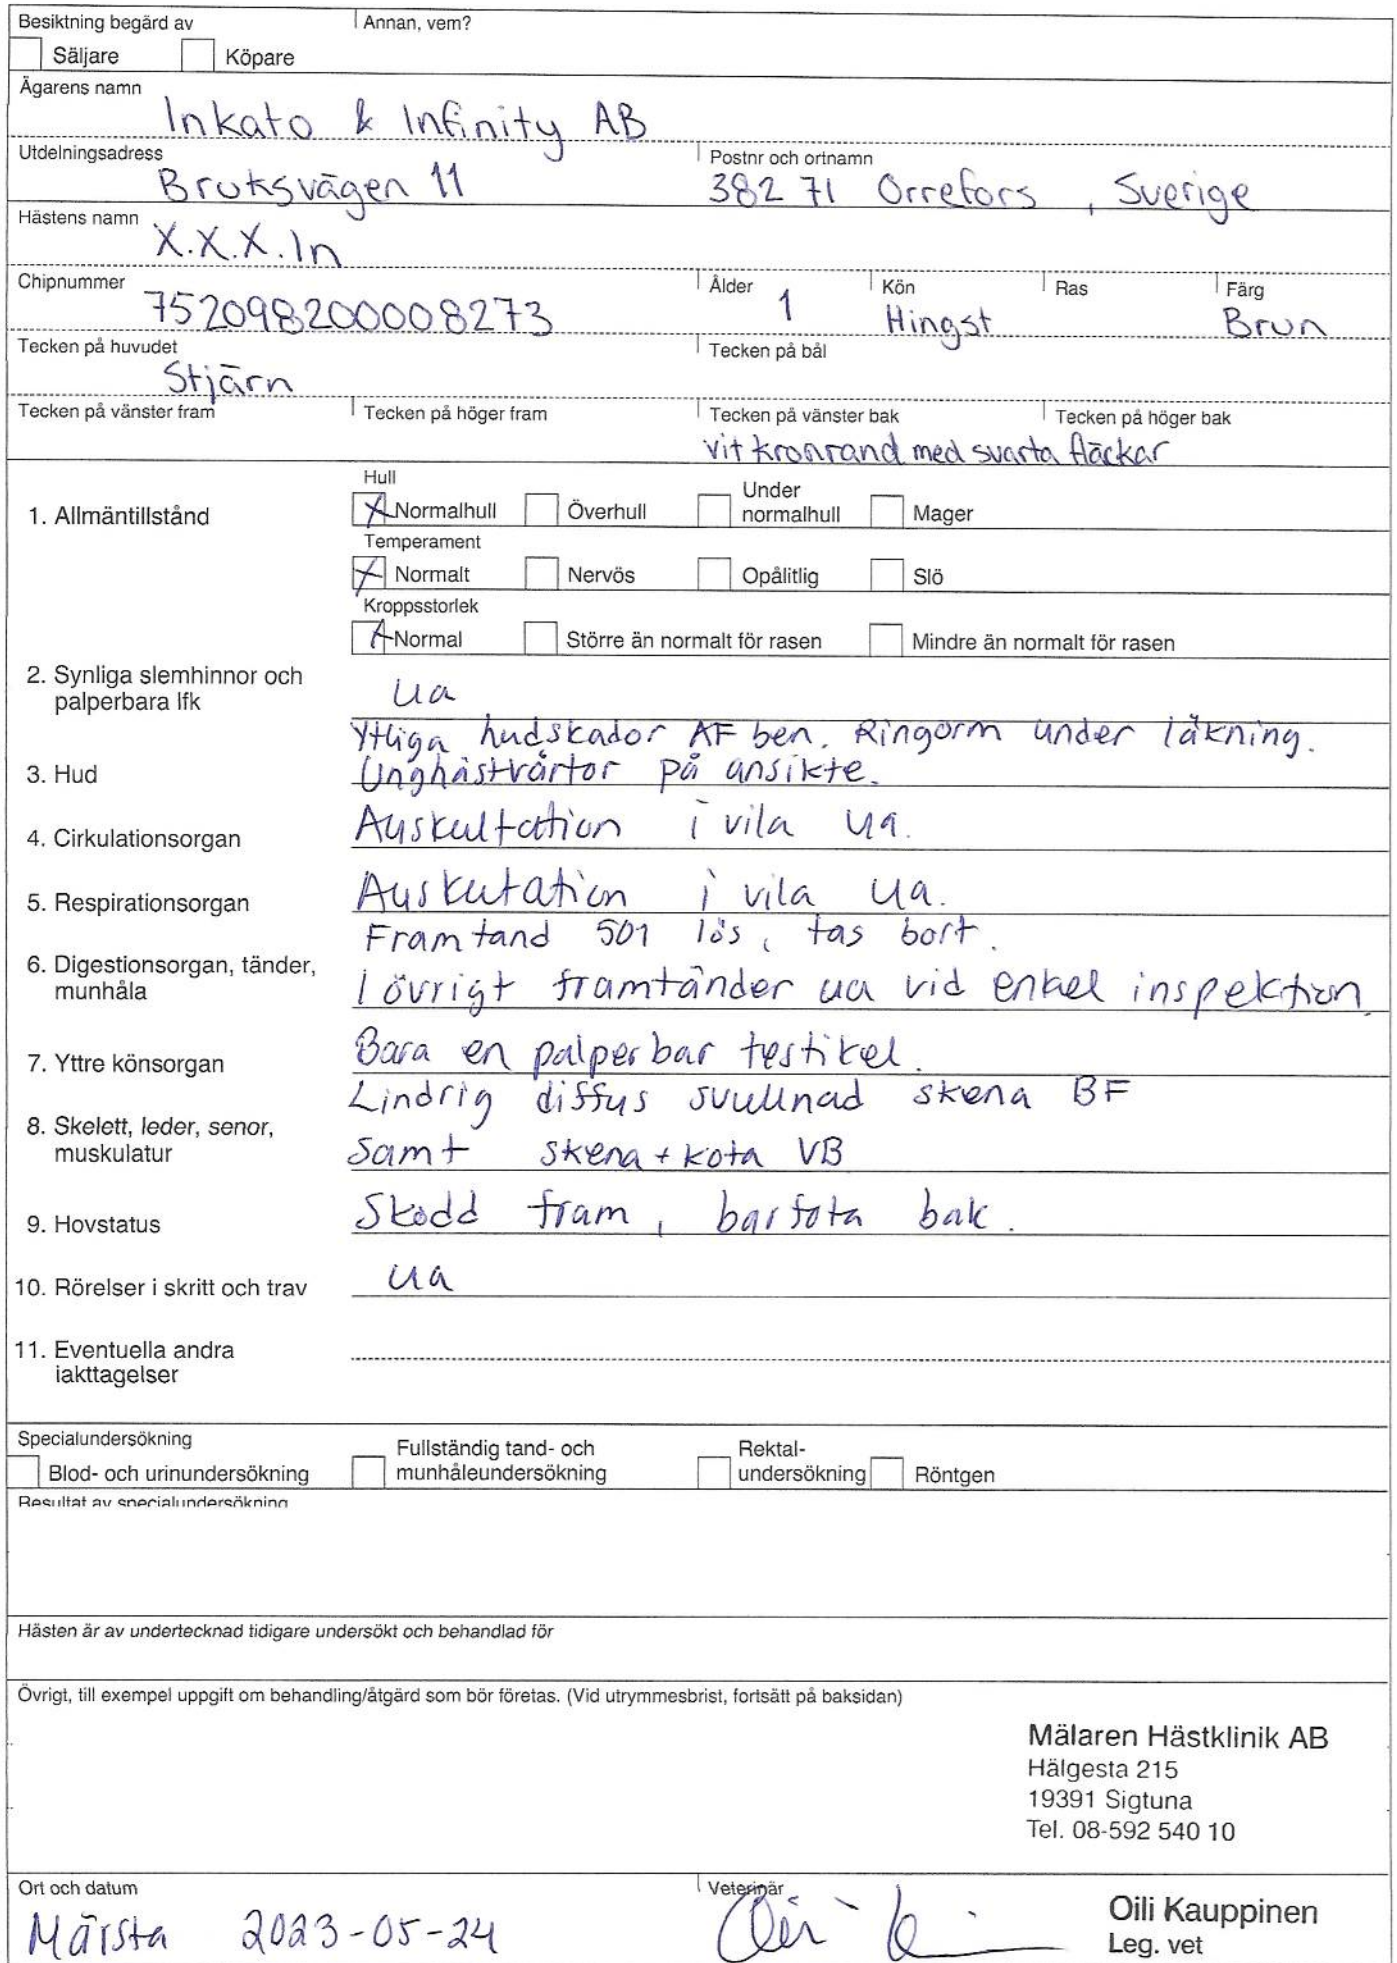 Besiktning begärd av
Annan, vem?
Säljare Köpare
Ägarens namn
Inkato & Infinity AB
Utdelningsadress Postnr och ortnamn
Bruksvägen 11 382 71 Orrefors , Sverige
Hästens namn
X.X.X.In
Chipnummer Ålder Kön Ras Färg
752098200008273 1 Hingst Brun
Tecken på huvudet Tecken på bål
Stjärn
Tecken på vänster fram Tecken på höger fram Tecken på vänster bak Tecken på höger bak
vit kronrand med svarta fläckar
Hull
1. Allmäntillstånd
X Normalhull Överhull Under normalhull Mager
Temperament
X Normalt Nervös Opålitlig Slö
Kroppsstorlek
X Normal Större än normalt för rasen Mindre än normalt för rasen
2. Synliga slemhinnor och
palperbara lfk
ua
Ytliga hudskador AF ben. Ringorm under läkning.
3. Hud Unghästvårtor på ansikte.
4. Cirkulationsorgan Auskultation i vila ua.
5. Respirationsorgan Auskutation i vila ua.
Framtand 501 lös, tas bort.
6. Digestionsorgan, tänder,
munhåla
I övrigt framtänder ua vid enkel inspektion.
7. Yttre könsorgan Bara en palperbar testikel.
Lindrig diffus svullnad skena BF
8. Skelett, leder, senor,
muskulatur
samt skena + kota VB
9. Hovstatus Skodd fram, barfota bak.
10. Rörelser i skritt och trav ua
11. Eventuella andra
iakttagelser
Specialundersökning
Blod- och urinundersökning Fullständig tand- och munhåleundersökning Rektal-undersökning Röntgen
Resultat av specialundersökning
Hästen är av undertecknad tidigare undersökt och behandlad för
Övrigt, till exempel uppgift om behandling/åtgärd som bör företas. (Vid utrymmesbrist, fortsätt på baksidan)
Mälaren Hästklinik AB
Hälgesta 215
19391 Sigtuna
Tel. 08-592 540 10
Ort och datum Veterinär
Märsta 2023-05-24
Oili Kauppinen
Leg. vet